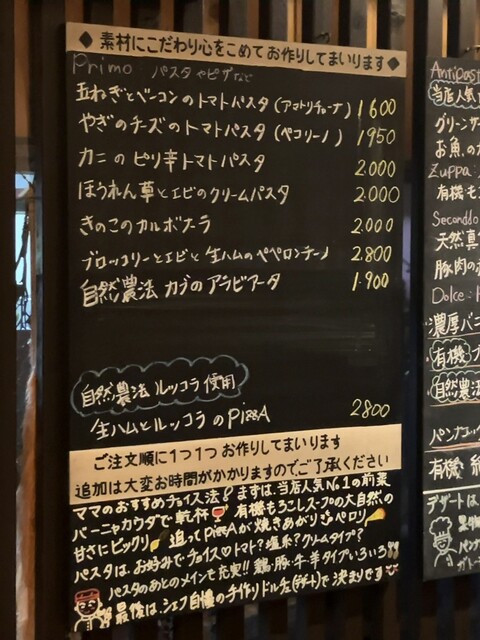 ◆ 素材にこだわり心をこめてお作りしてまいります ◆
Primo : パスタやピザなど
玉ねぎとベーコンのトマトパスタ (アマトリチャーナ) 1600
やぎのチーズのトマトパスタ (ペコリーノ) 1950
カニのピリ辛トマトパスタ 2000
ほうれん草とエビのクリームパスタ 2000
きのこのカルボナーラ 2.000
ブロッコリーとエビと生ハムのペペロンチーノ 2.800
自然農法 カブのアラビアータ 1.900
自然農法 ルッコラ使用
生ハムとルッコラのPizzA 2800
ご注文順に1つ1つ お作りしてまいります
追加は大変お時間がかかりますのでご了承ください
ママのおすすめチョイス法 まずは、当店人気No.1の前菜
バーニャカウダで乾杯 有機もろこしスープの大自然の
甘さにビックリ 追ってPizzAが焼きあがりペロリ
パスタは、お好みでチョイス♡トマト?塩系?クリームタイプ?
パスタのあとのメインも充実!! 鶏・豚・牛・羊タイプいろいろ
最後は、シェフ自慢の手作りドルチェ(デザート)で決まりです
AntiPast
当店人気
グリーンサ
お魚の
Zuppa:
有機も
Secondo
天然真
豚肉の
Dolce:
濃厚バニ
有機
自然農
パンナコッ
有機
デザートは